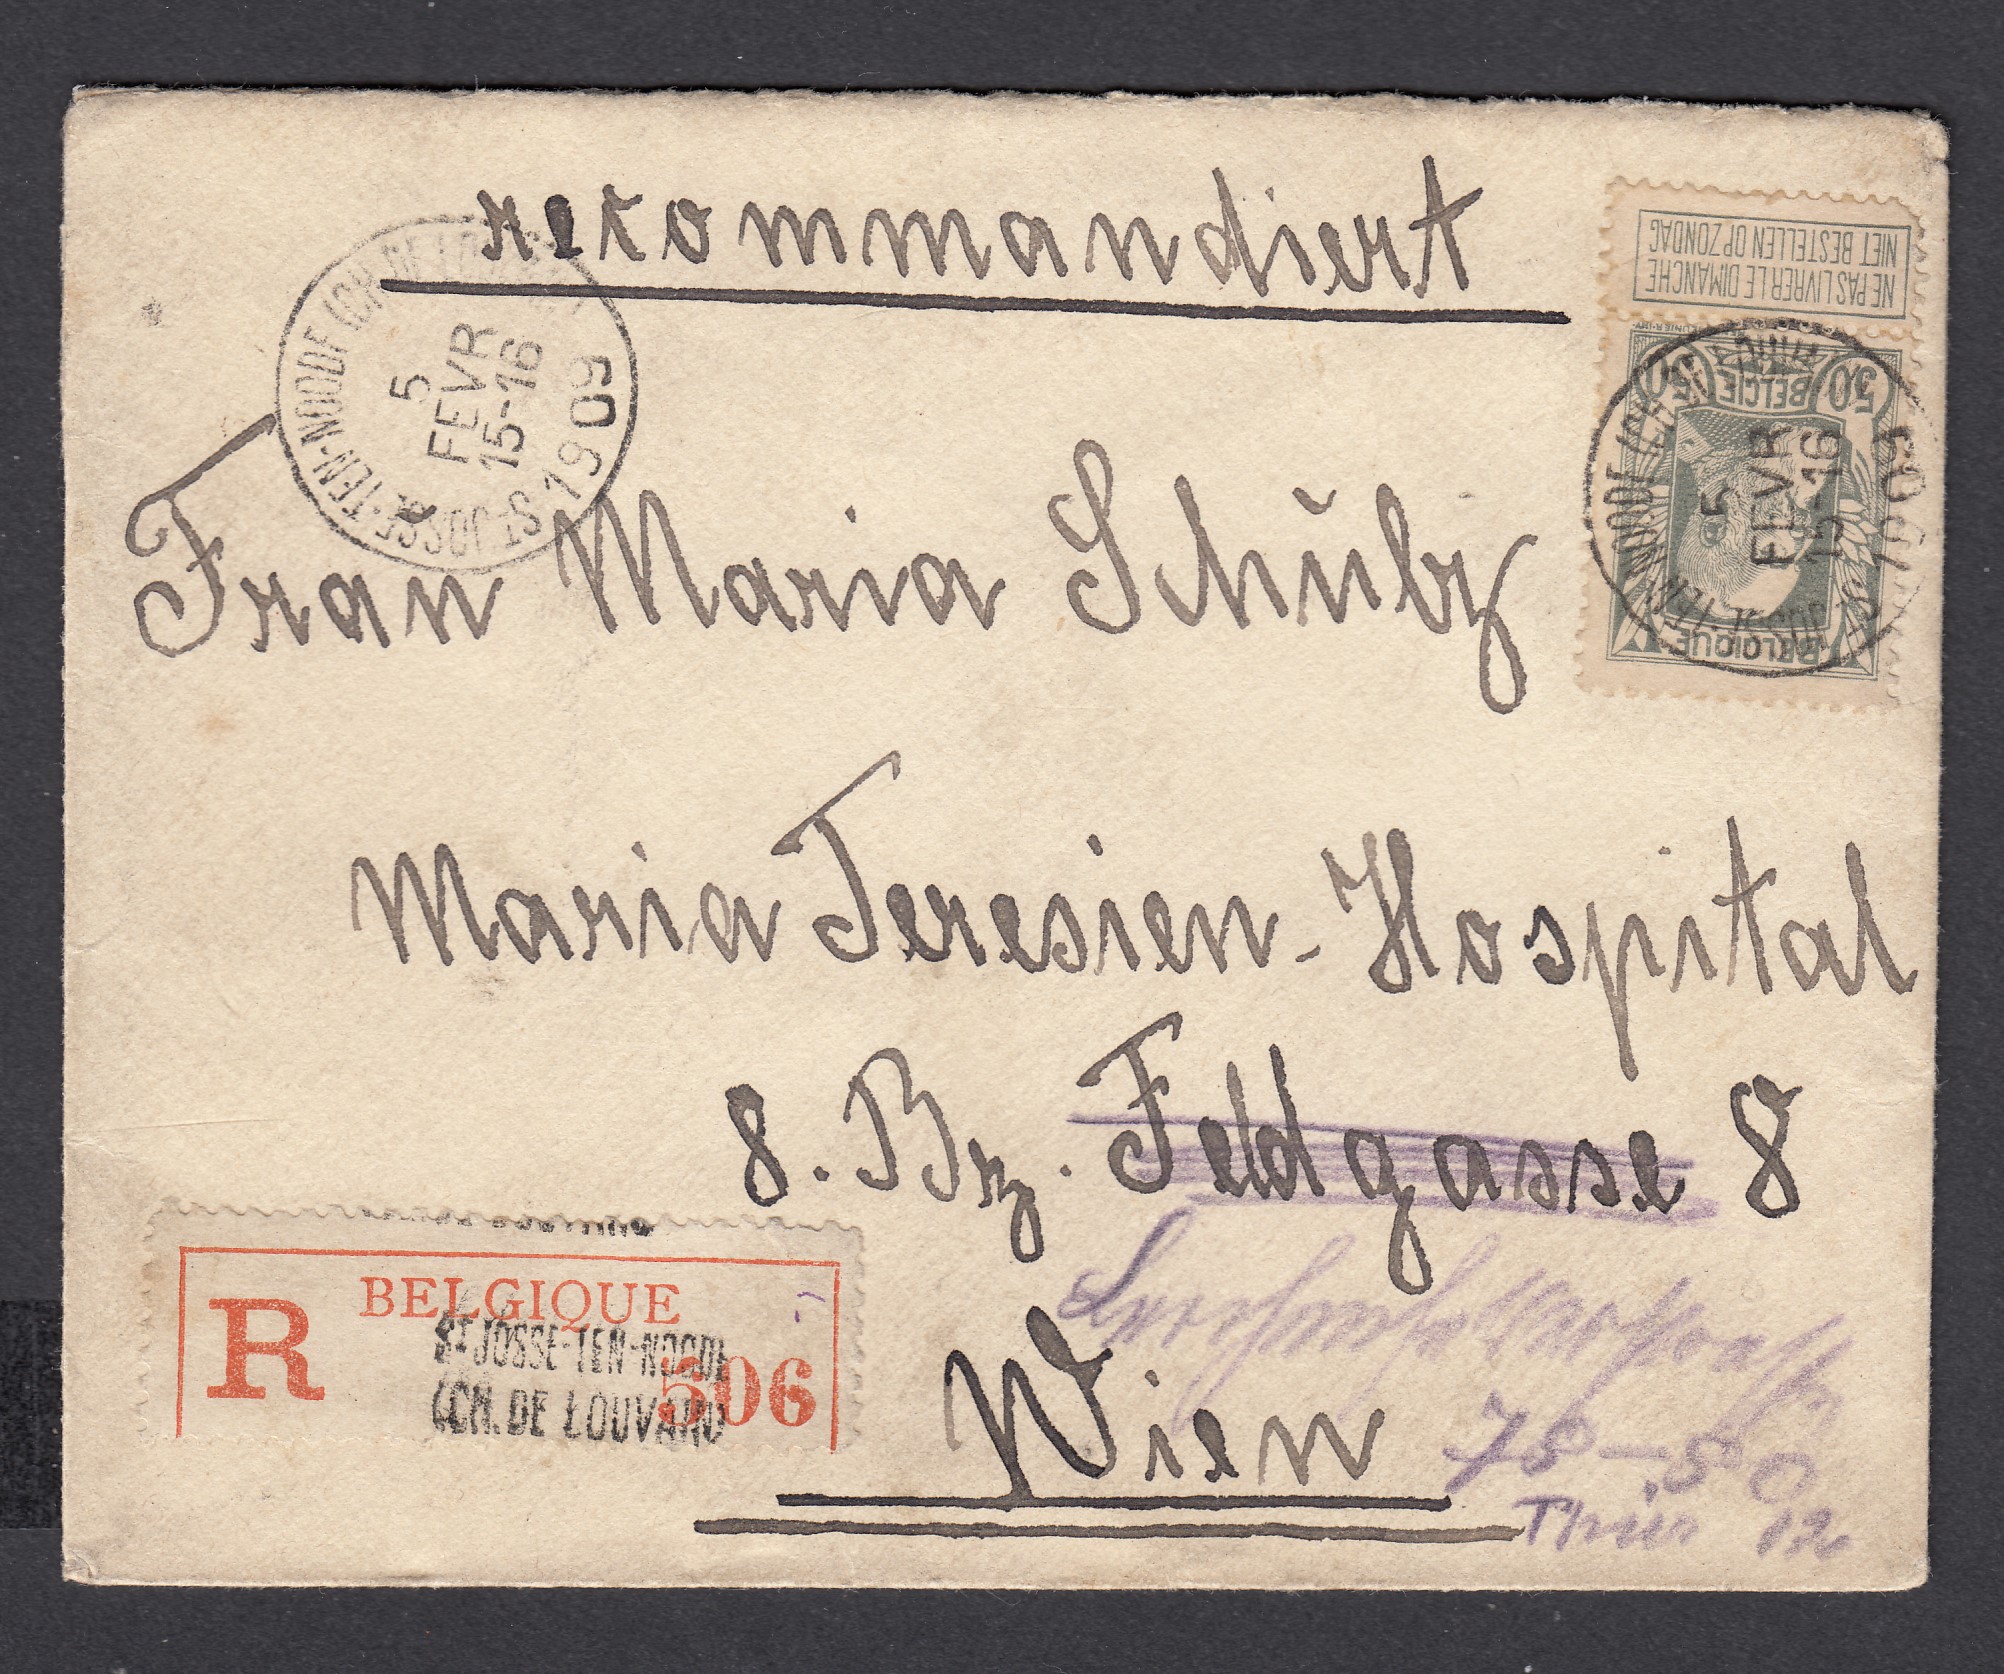 rekommandiert
NE PAS LIVRER LE DIMANCHE
NIET BESTELLEN OP ZONDAG
ST-JOSSE-TEN-NOODE (CH. DE LOUVAIN)
5
FEVR
15-16
1909
50 BELGIE 50
BELGIQUE
ST-JOSSE-TEN-NOODE (CH. DE
5
FEVR
15-16
1909
Frau Maria Schübz
Maria Teresien-Hospital
8. Bz. Feldgasse 8
Wien
78-80
Thür 12
R BELGIQUE
ST JOSSE-TEN-NOODE
(CH. DE LOUVAIN)
506